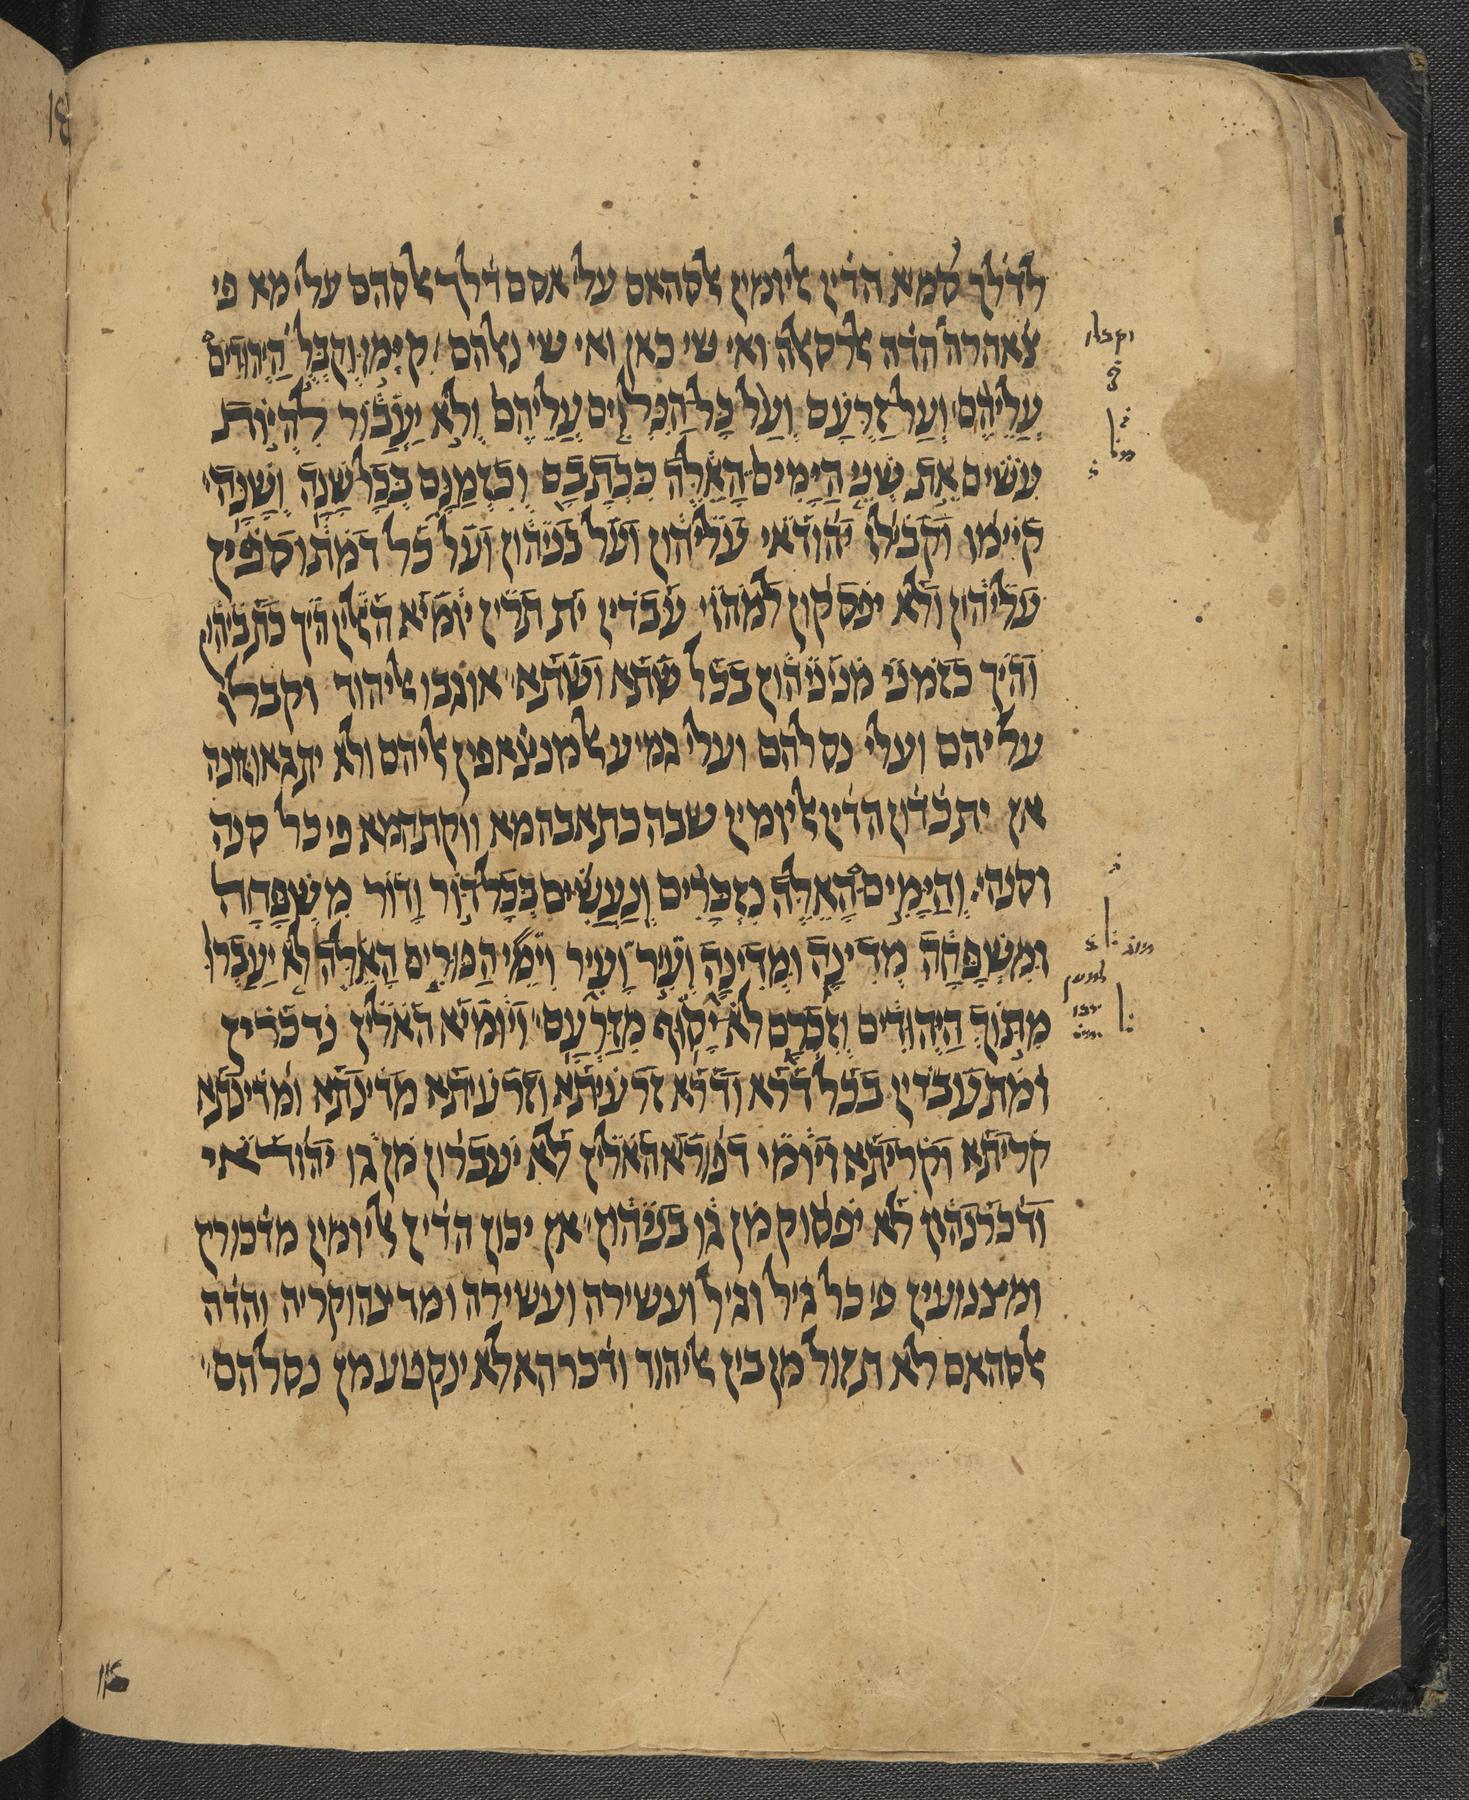 לדלך סמא הדין אליומין אלסהאם עלי אסם דלך אלסהם עלי מא פי
צאהרה הדה אלרסאלה ואי שי כאן ואי שי נאלהם קִיְּמוּ וְקִבְּלֻ הַיְּהוּדִים
עֲלֵיהֶם וְעַל זַרְעָם וְעַל כָּל הַנִּלְוִים עֲלֵיהֶם וְלֹא יַעֲבוֹר לִהְיוֹת
עֹשִׂים אֵת שְׁנֵי הַיָּמִים הָאֵלֶּה כִּכְתָבָם וְכִזְמַנָּם בְּכָל שָׁנָה וְשָׁנָה
קיימו וקבילו יהודאי עליהון ועל בניהון ועל כל דמתוספין
עליהון ולא יפסקון למהוי עבדין ית תרין יומיא האלין היך כתביהין
והיך כזמני מניניהון בכל שתא ושתא אוגבו אליהוד וקבלו
עליהם ועלי נסלהם ועלי גמיע אלמנצאפין אליהם ולא יתגאוזונה
אן יתכדון הדין אליומין שבה כתאבהמא ווקתהמא פי כל סנה
וסנה וְהַיָּמִים הָאֵלֶּה נִזְכָּרִים וְנַעֲשִׂים בְּכָל דּוֹר וָדוֹר מִשְׁפָּחָה
וּמִשְׁפָּחָה מְדִינָה וּמְדִינָה וְעִיר וָעִיר וִימֵי הַפּוּרִים הָאֵלֶּה לֹא יַעַבְרוּ
מִתּוֹךְ הַיְּהוּדִים וְזִכְרָם לֹא יָסוּף מִזַּרְעָם ויומיא האלין נדכרין
ומתעבדין בכל דרא ודרא זרעיתא וזרעיתא מדינתא ומדינתא
קריתא וקריתא ויומי דפוריא האלין לא יעברון מן גו יהודאי
ודכרנהון לא יפסוק מן גו בניהון אן יכון הדין אליומין מדכורין
ומצנועין פי כל גיל וגיל ועשירה ועשירה ומדינה וקריה והדה
אלסהאם לא תזול מן בין אליהוד ודכרהא לא ינקטע מן נסלהם